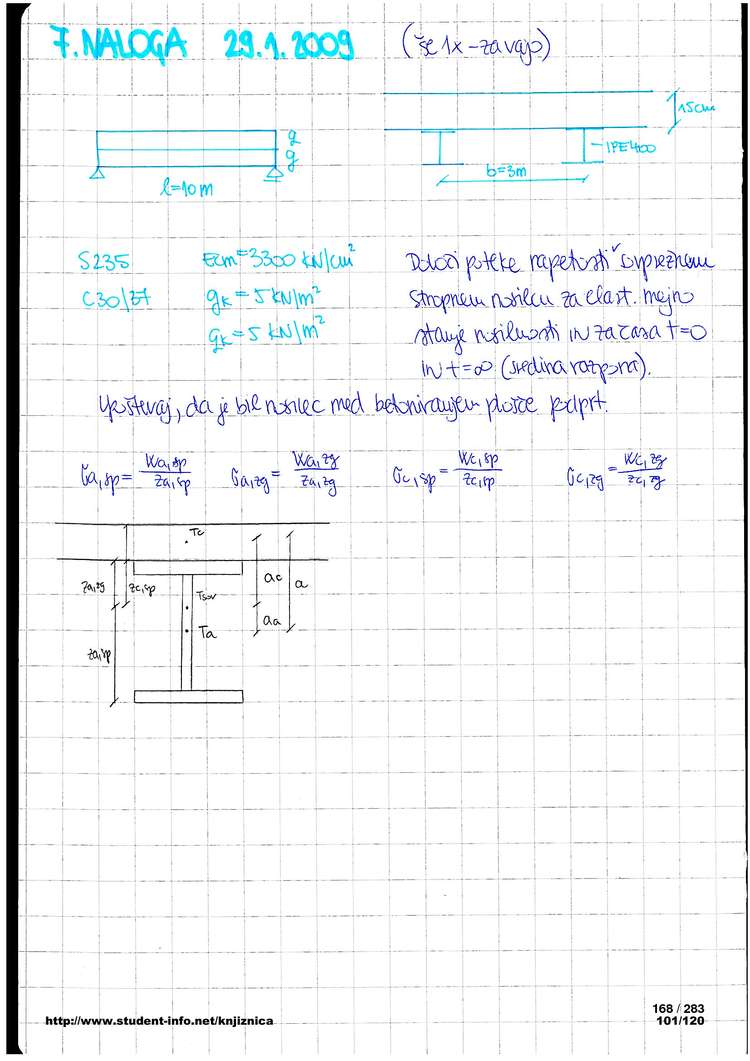 7. NALOGA 29.1.2009 (še 1x - za vajo)
15cm
q
g
IPE400
b=3m
l=10m
S235 Ecm=3300 kN/cm² Določi poteke napetosti v sovprežnem
C30/37 gk=5 kN/m² stropnem nosilcu za elast. mejno
qk=5 kN/m² stanje nosilnosti IN za časa t=0
IN t=∞ (sredina razpona).
Upoštevaj, da je bil nosilec med betoniranjem plošče podprt.
σa,sp = Wa,sp / za,sp σa,zg = Wa,zg / za,zg σc,sp = Wc,sp / zc,sp σc,zg = Wc,zg / zc,zg
Tc
za,zg zc,sp Tsov ac a
Ta aa
za,sp
168 / 283
http://www.student-info.net/knjiznica 101/120